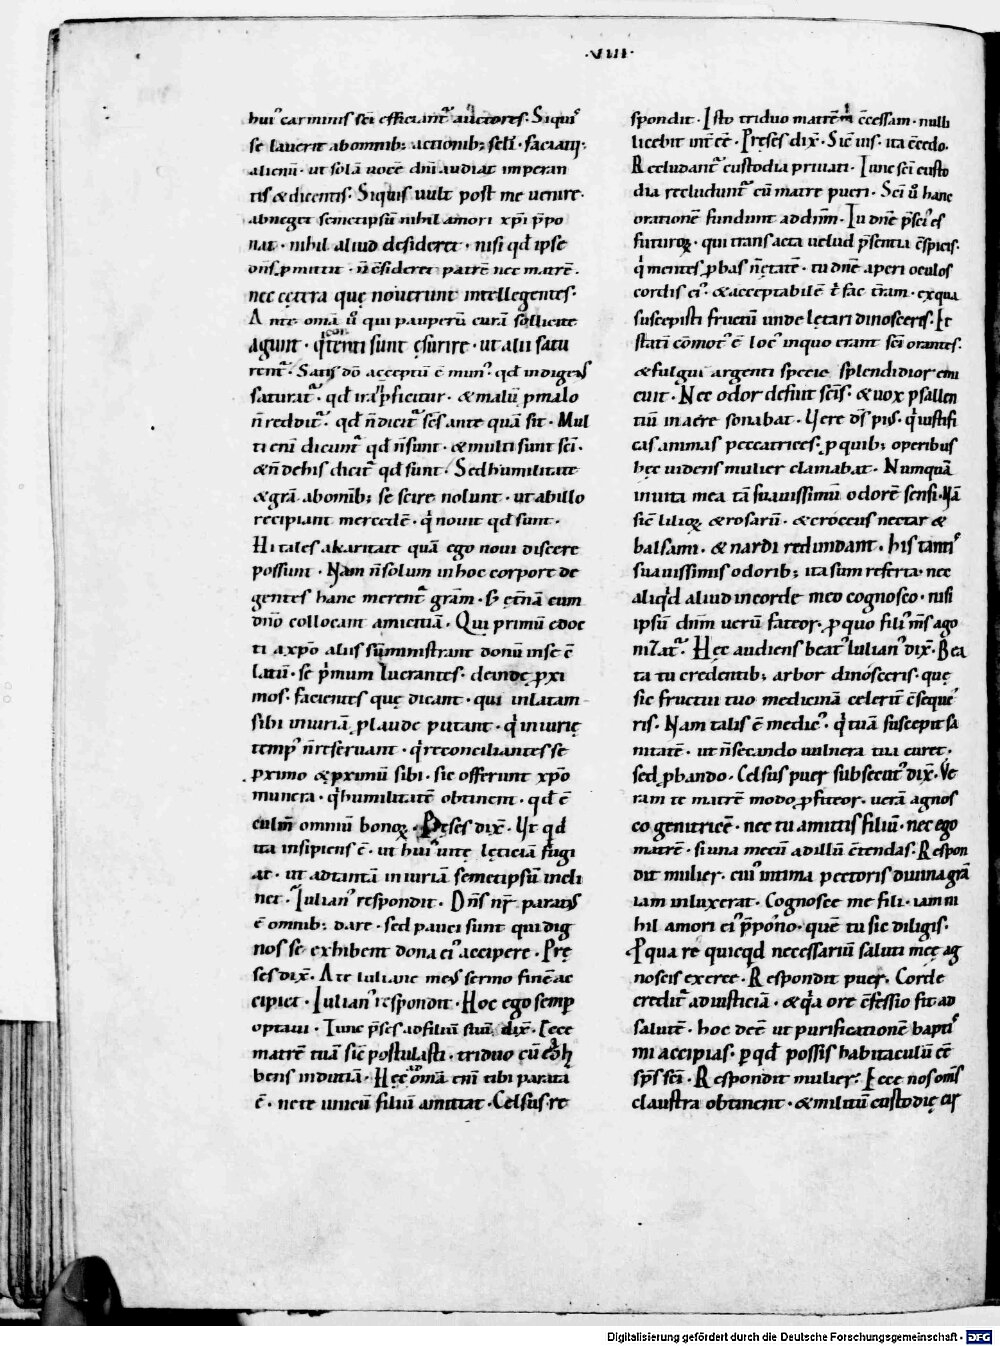 ·VIII·
hui᷒ carminis sc̄i efficiant᷒ auctores. Siqui᷒
se lauerit abomnib; actionib; sc̄li · faciatq;
alienū · ut solā uocē dn̄i audiat imperan
tis & dicentis. Siquis uult post me uenire·
abneget semetipsū nihil amori xp̄i p̄po
nat · nihil aliud desideret · nisi qđ ipse
dn̄s ꝑmittit · n̄ c̄sideret patrē nec matrē ·
nec cętera quę nouerunt intellegentes·
Ante om̄a u͛o qui pauperū curā sollicite
agunt · q̇tenti sunt ęsurire · ut alii satu
rent᷒. Satis dō acceptū ē mun᷒ · qđ indigens
saturat᷒ · qđ ira ꝑficitur · & malū ꝓ malo
n̄ reddit᷒ · qđ n̄ dicit᷒ sēs ante quā sit · Mul
ti enī dicunt᷒ qđ n̄ sunt · & multi sunt sc̄i ·
& n̄ de his dicit᷒ qđ sunt · Sed humilitate
& grā abomīb; se scire nolunt · ut ab illo
recipiant mercedē · q̇ nouit qđ sunt ·
Hi tales a karitate quā ego noui discere
possunt · Nam n̄ solum in hoc corpore de
gentes hanc merent᷒ grām · s; ęt̄nā cum
dn̄o collocant amicitiā · Qui primū edoc
ti a xp̄o aliis sūministrant donū in se c̄
latū · se p̄mum lucrantes · deinde ꝓxi
mos · facientes quę dicant · qui inlatam
sibi iniuriā ꝓ laude putant · q̇ iniurię
temp᷒ n̄ reseruant · q̇ reconciliantes se
ꝓximo & ꝓximū sibi · sic offerunt xp̄o
munera · q̇ humilitatē obtinent · qđ ē
culm̄ omniū bonoꝝ · Pręses dix̄ · Ut qđ
ita insipiens ē · ut hui᷒ uitę lęticiā fugi
at · ut ad tantā iniuriā semetipsū incli
net · Iulian᷒ respondit · Dn̄s nr̄ parat᷒
ē omnib; dare · sed pauci sunt qui dig
nos se exhibent dona ei᷒ accipere · Prę
ses dix̄ · A te iuliane me᷒ sermo finē ac
cipiet · Iulian᷒ respondit · Hoc ego semꝑ
optaui · Tunc p̄ses ad filiū suū dix̄ · Ecce
matrē tuā sic̄ postulasti · triduo cū eo h
bens inditiā · Hęc om̄a enī tibi parata
ē · ne te unicū filiū amittat · Celsus re
spondit · Isto triduo matrē m̄ c̄cessam · nulli
licebit int̄ ēē · Pręses dix̄ · Sic̄ uis · ita c̄cedo.
Recludant᷒ custodia priuati · Tunc sc̄i custo
dia recludunt᷒ cū matre pueri · Sc̄i u͛o hanc
orationē fundunt ad dn̄m · Tu dn̄e p̄sci᷒ es
futuroꝝ · qui transacta uelud p̄sentia c̄spicis·
q̇ mentes ꝓbas n̄ ętatē · tu dn̄e aperi oculos
cordis ei᷒ · & acceptabilē t̄ fac t̄ram · ex qua
suscepisti fructū unde lętari dinosceris · Et
statī cōmot᷒ ē loc᷒ in quo erant sc̄i orantes·
& fulgui argenti specie splendidior emi
cuit · Nec odor defuit sc̄is · & uox psallen
tiū in aere sonabat · Uere dō pi᷒ · q̇ iustifi
cas animas peccatrices · ꝓ quib; operibus
hęc uidens mulier clamabat · Numquā
in uita mea tā suauissimū odorē sensi · Nā
sic̄ lilioꝝ · & rosarū · & croceus nectar &
balsami · & nardi redundant · his tanti᷒
suauissimis odorib; ita sum referta · nec
aliqđ aliud in corde meo cognosco · nisi
ipsū dn̄m uerū fateor · ꝑ quo fili᷒ m̄s ago
nizat᷒ · Hęc audiens beat᷒ Iulian᷒ dix̄ · Bea
ta tu credentib; arbor dinosceris · quę
sic fructui tuo medicinā celerū c̄seque
ris · Nam talis ē medic᷒ · q̇ tuā suscepit sa
nitatē · ut n̄ secando uulnera tua curet ·
sed ꝓbando · Celsus puer subsecut᷒ dix̄ · Ue
ram te matrē modo ꝓfiteor · uerā agnos
co genitricē · nec tu amittis filiū · nec ego
matrē · si una mecū ad illū c̄tendas · Respon
dit mulier · cui᷒ intima pectoris diuina grā
iam inluxerat · Cognosce me fili · iam ni
hil amori ei᷒ p̄pono · quē tu sic diligis ·
Ꝑ qua rē quicqđ necessariū saluti meę ag
noscis exerce · Respondit puer · Corde
credit᷒ ad iusticiā · & q̇a ore c̄fessio fit ad
salutē · hoc decē ut purificationē bapti᷒
mi accipias · ꝑ qđ possis habitaculū ēē
sp̄s sc̄i · Respondit mulier · Ecce nos om̄s
claustra obtinent · & militū custodię eis
Digitalisierung gefördert durch die Deutsche Forschungsgemeinschaft - DFG